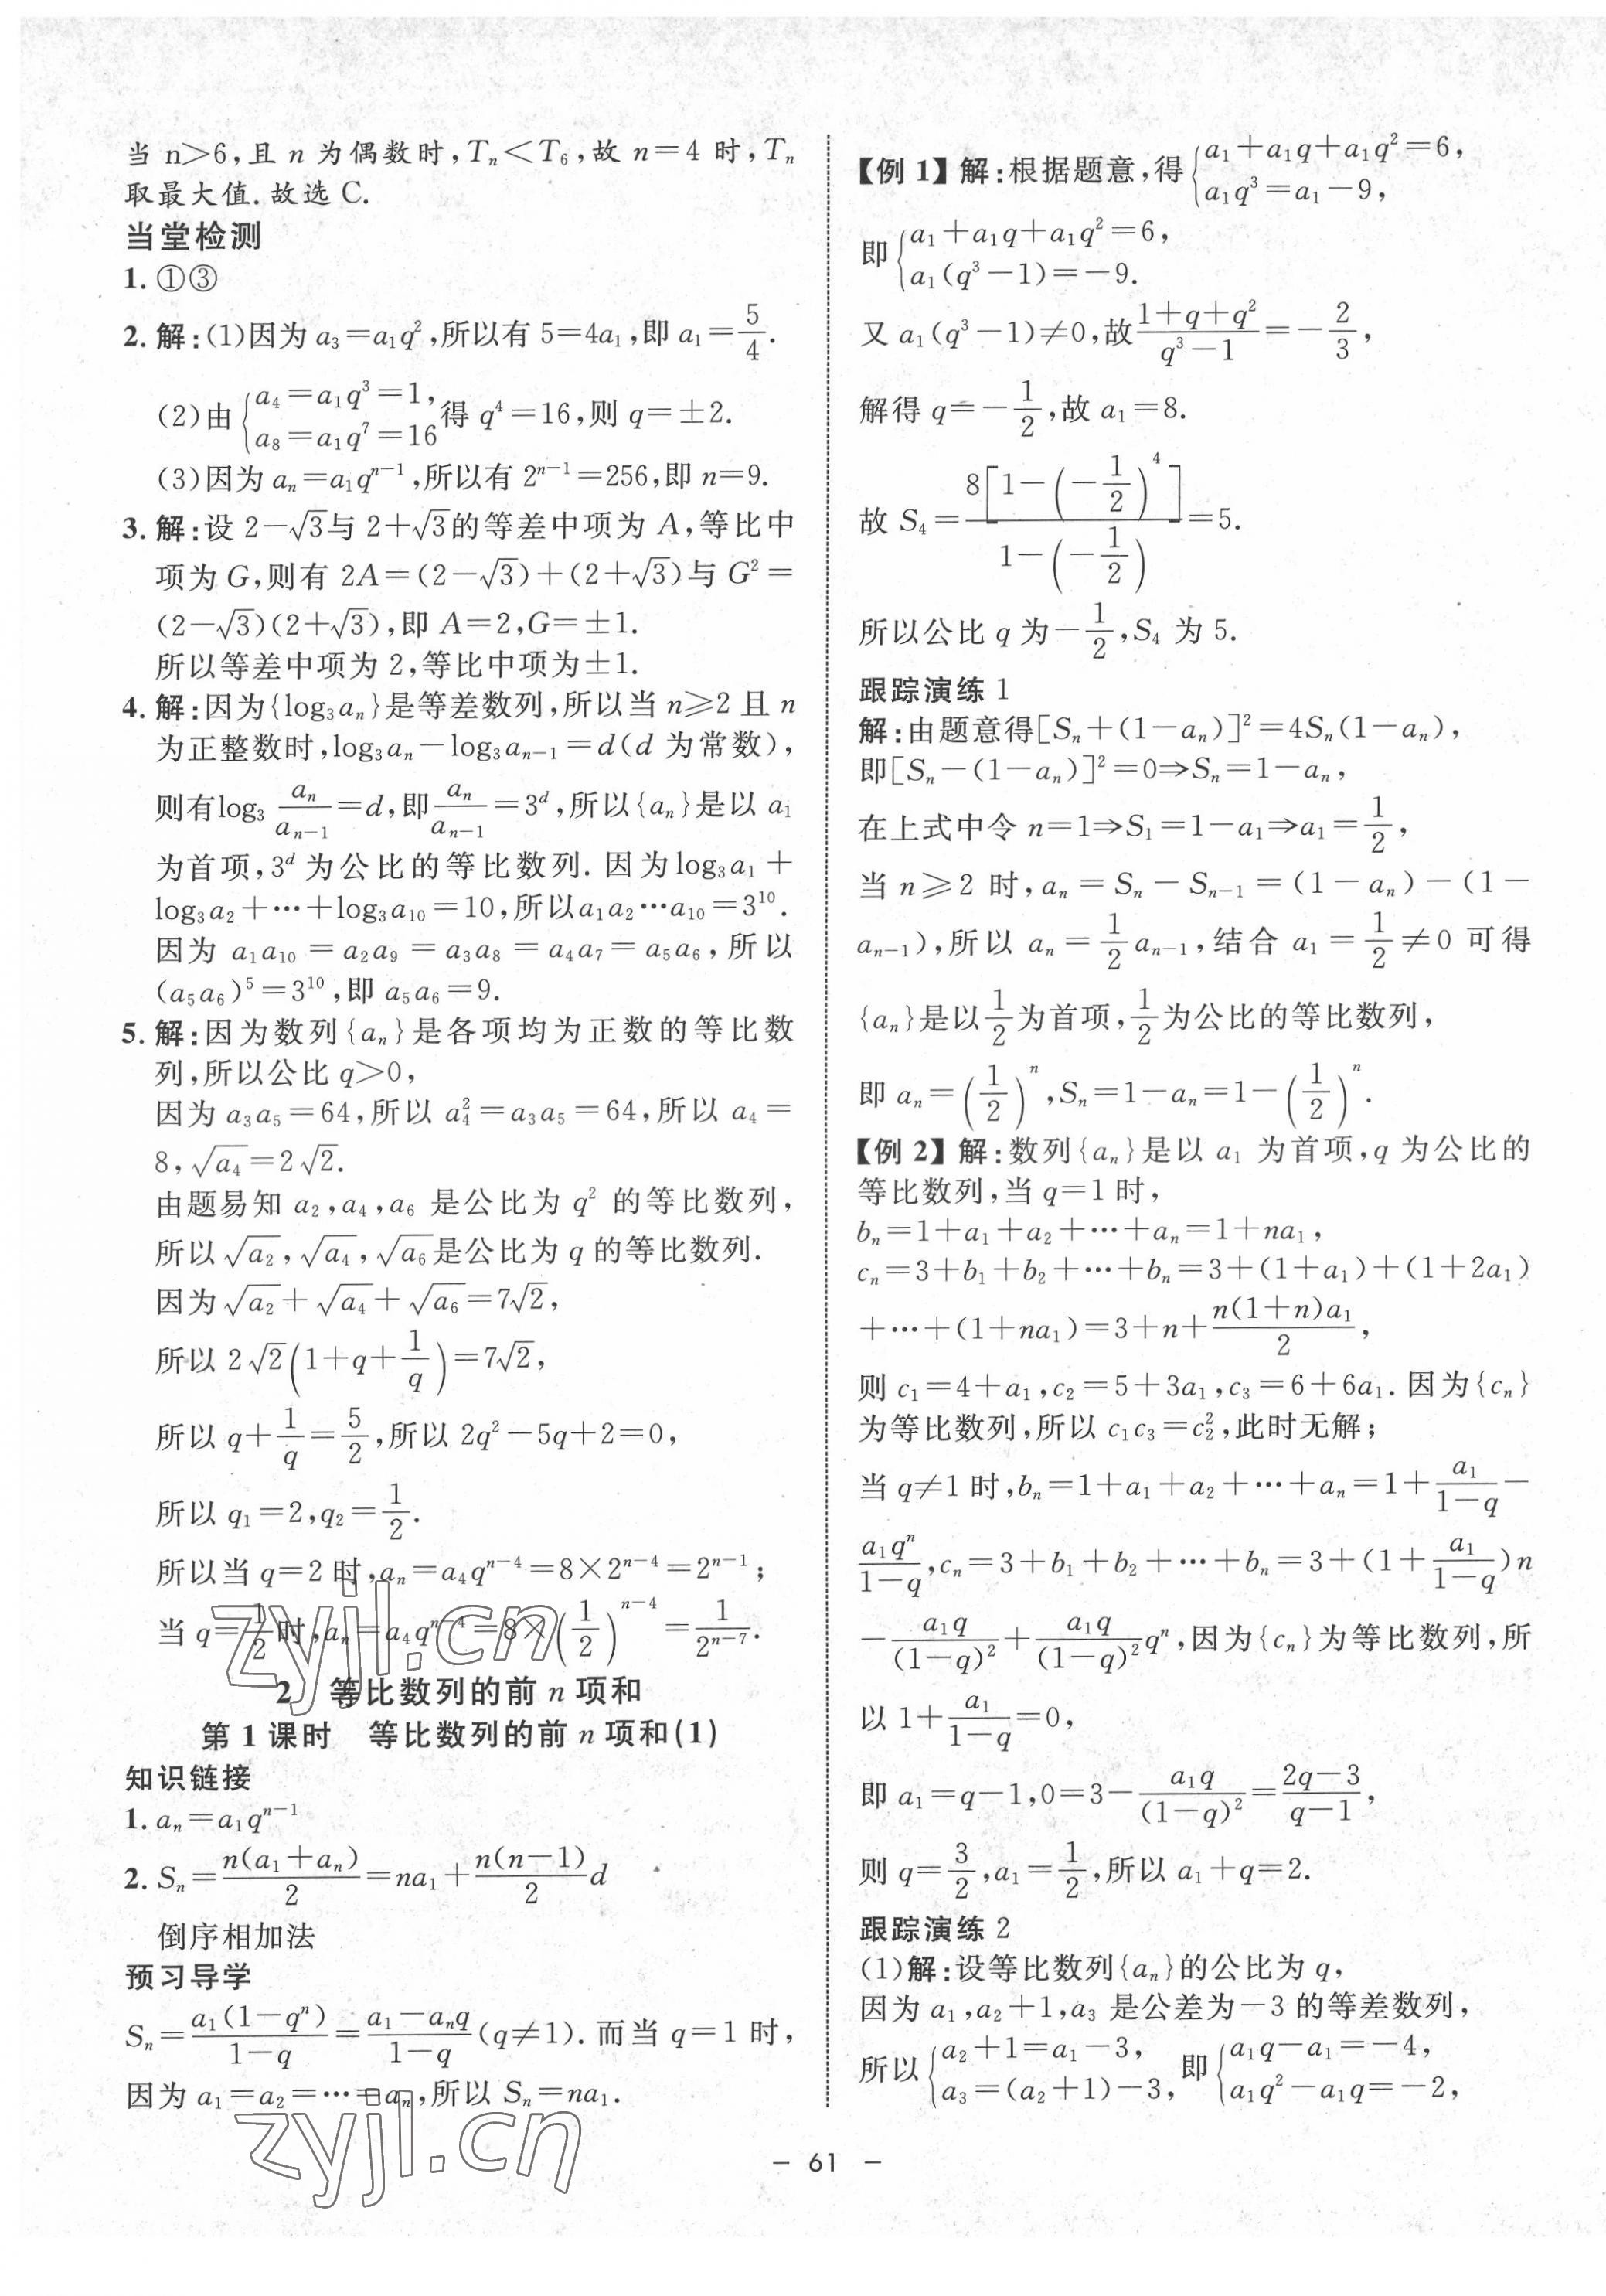 当 n>6,且 n 为偶数时,Tₙ<T₆,故 n=4 时,Tₙ
取最大值.故选 C.
当堂检测
1. ①③
2. 解:(1)因为 a₃=a₁q²,所以有 5=4a₁,即 a₁=5/4.
(2)由{a₄=a₁q³=1, a₈=a₁q⁷=16 得 q⁴=16,则 q=±2.
(3)因为 aₙ=a₁qⁿ⁻¹,所以有 2ⁿ⁻¹=256,即 n=9.
3. 解:设 2-√3与 2+√3的等差中项为 A,等比中
项为 G,则有 2A=(2-√3)+(2+√3)与 G²=
(2-√3)(2+√3),即 A=2,G=±1.
所以等差中项为 2,等比中项为±1.
4. 解:因为{log₃aₙ}是等差数列,所以当 n≥2 且 n
为正整数时,log₃aₙ-log₃aₙ₋₁=d(d 为常数),
则有log₃ aₙ/aₙ₋₁=d,即aₙ/aₙ₋₁=3ᵈ,所以{aₙ}是以 a₁
为首项,3ᵈ 为公比的等比数列. 因为log₃a₁+
log₃a₂+…+log₃a₁₀=10,所以a₁a₂…a₁₀=3¹⁰.
因为 a₁a₁₀=a₂a₉=a₃a₈=a₄a₇=a₅a₆,所以
(a₅a₆)⁵=3¹⁰,即 a₅a₆=9.
5. 解:因为数列{aₙ}是各项均为正数的等比数
列,所以公比 q>0,
因为 a₃a₅=64,所以 a₄²=a₃a₅=64,所以 a₄=
8,√a₄=2√2.
由题易知 a₂,a₄,a₆ 是公比为 q² 的等比数列,
所以√a₂,√a₄,√a₆是公比为 q 的等比数列.
因为√a₂+√a₄+√a₆=7√2,
所以 2√2(1+q+1/q)=7√2,
所以 q+1/q=5/2,所以 2q²-5q+2=0,
所以 q₁=2,q₂=1/2.
所以当 q=2 时,aₙ=a₄qⁿ⁻⁴=8×2ⁿ⁻⁴=2ⁿ⁻¹;
当 q=1/2时,aₙ=a₄qⁿ⁻⁴=8×(1/2)ⁿ⁻⁴=1/2ⁿ⁻⁷.
zyjl.cn
2 等比数列的前 n 项和
第 1 课时 等比数列的前 n 项和(1)
知识链接
1. aₙ=a₁qⁿ⁻¹
2. Sₙ=n(a₁+aₙ)/2=na₁+n(n-1)/2 d
倒序相加法
预习导学
Sₙ=a₁(1-qⁿ)/(1-q)=(a₁-aₙq)/(1-q)(q≠1). 而当 q=1 时,
因为 a₁=a₂=…=aₙ,所以 Sₙ=na₁.
zyjl.cn
【例 1】解:根据题意,得{a₁+a₁q+a₁q²=6, a₁q³=a₁-9,
即{a₁+a₁q+a₁q²=6, a₁(q³-1)=-9.
又 a₁(q³-1)≠0,故(1+q+q²)/(q³-1)=-2/3,
解得 q=-1/2,故 a₁=8.
故 S₄=8[1-(-1/2)⁴]/(1-(-1/2))=5.
所以公比 q 为-1/2,S₄ 为 5.
跟踪演练 1
解:由题意得[Sₙ+(1-aₙ)]²=4Sₙ(1-aₙ),
即[Sₙ-(1-aₙ)]²=0⇒Sₙ=1-aₙ,
在上式中令 n=1⇒S₁=1-a₁⇒a₁=1/2,
当 n≥2 时,aₙ=Sₙ-Sₙ₋₁=(1-aₙ)-(1-
aₙ₋₁),所以 aₙ=1/2 aₙ₋₁,结合 a₁=1/2≠0 可得
{aₙ}是以1/2为首项,1/2为公比的等比数列,
即 aₙ=(1/2)ⁿ,Sₙ=1-aₙ=1-(1/2)ⁿ.
【例 2】解:数列{aₙ}是以 a₁ 为首项,q 为公比的
等比数列,当 q=1 时,
bₙ=1+a₁+a₂+…+aₙ=1+na₁,
cₙ=3+b₁+b₂+…+bₙ=3+(1+a₁)+(1+2a₁)
+…+(1+na₁)=3+n+n(1+n)a₁/2,
则 c₁=4+a₁,c₂=5+3a₁,c₃=6+6a₁. 因为{cₙ}
为等比数列,所以 c₁c₃=c₂²,此时无解;
当 q≠1 时,bₙ=1+a₁+a₂+…+aₙ=1+a₁/(1-q)-
a₁qⁿ/(1-q),cₙ=3+b₁+b₂+…+bₙ=3+(1+a₁/(1-q))n
-a₁q/(1-q)²+a₁q/(1-q)² qⁿ,因为{cₙ}为等比数列,所
以 1+a₁/(1-q)=0,
即 a₁=q-1,0=3-a₁q/(1-q)²=(2q-3)/(q-1),
则 q=3/2,a₁=1/2,所以 a₁+q=2.
跟踪演练 2
(1)解:设等比数列{aₙ}的公比为 q,
因为 a₁,a₂+1,a₃ 是公差为-3 的等差数列,
所以{a₂+1=a₁-3, a₃=(a₂+1)-3, 即{a₁q-a₁=-4, a₁q²-a₁q=-2,
- 61 -